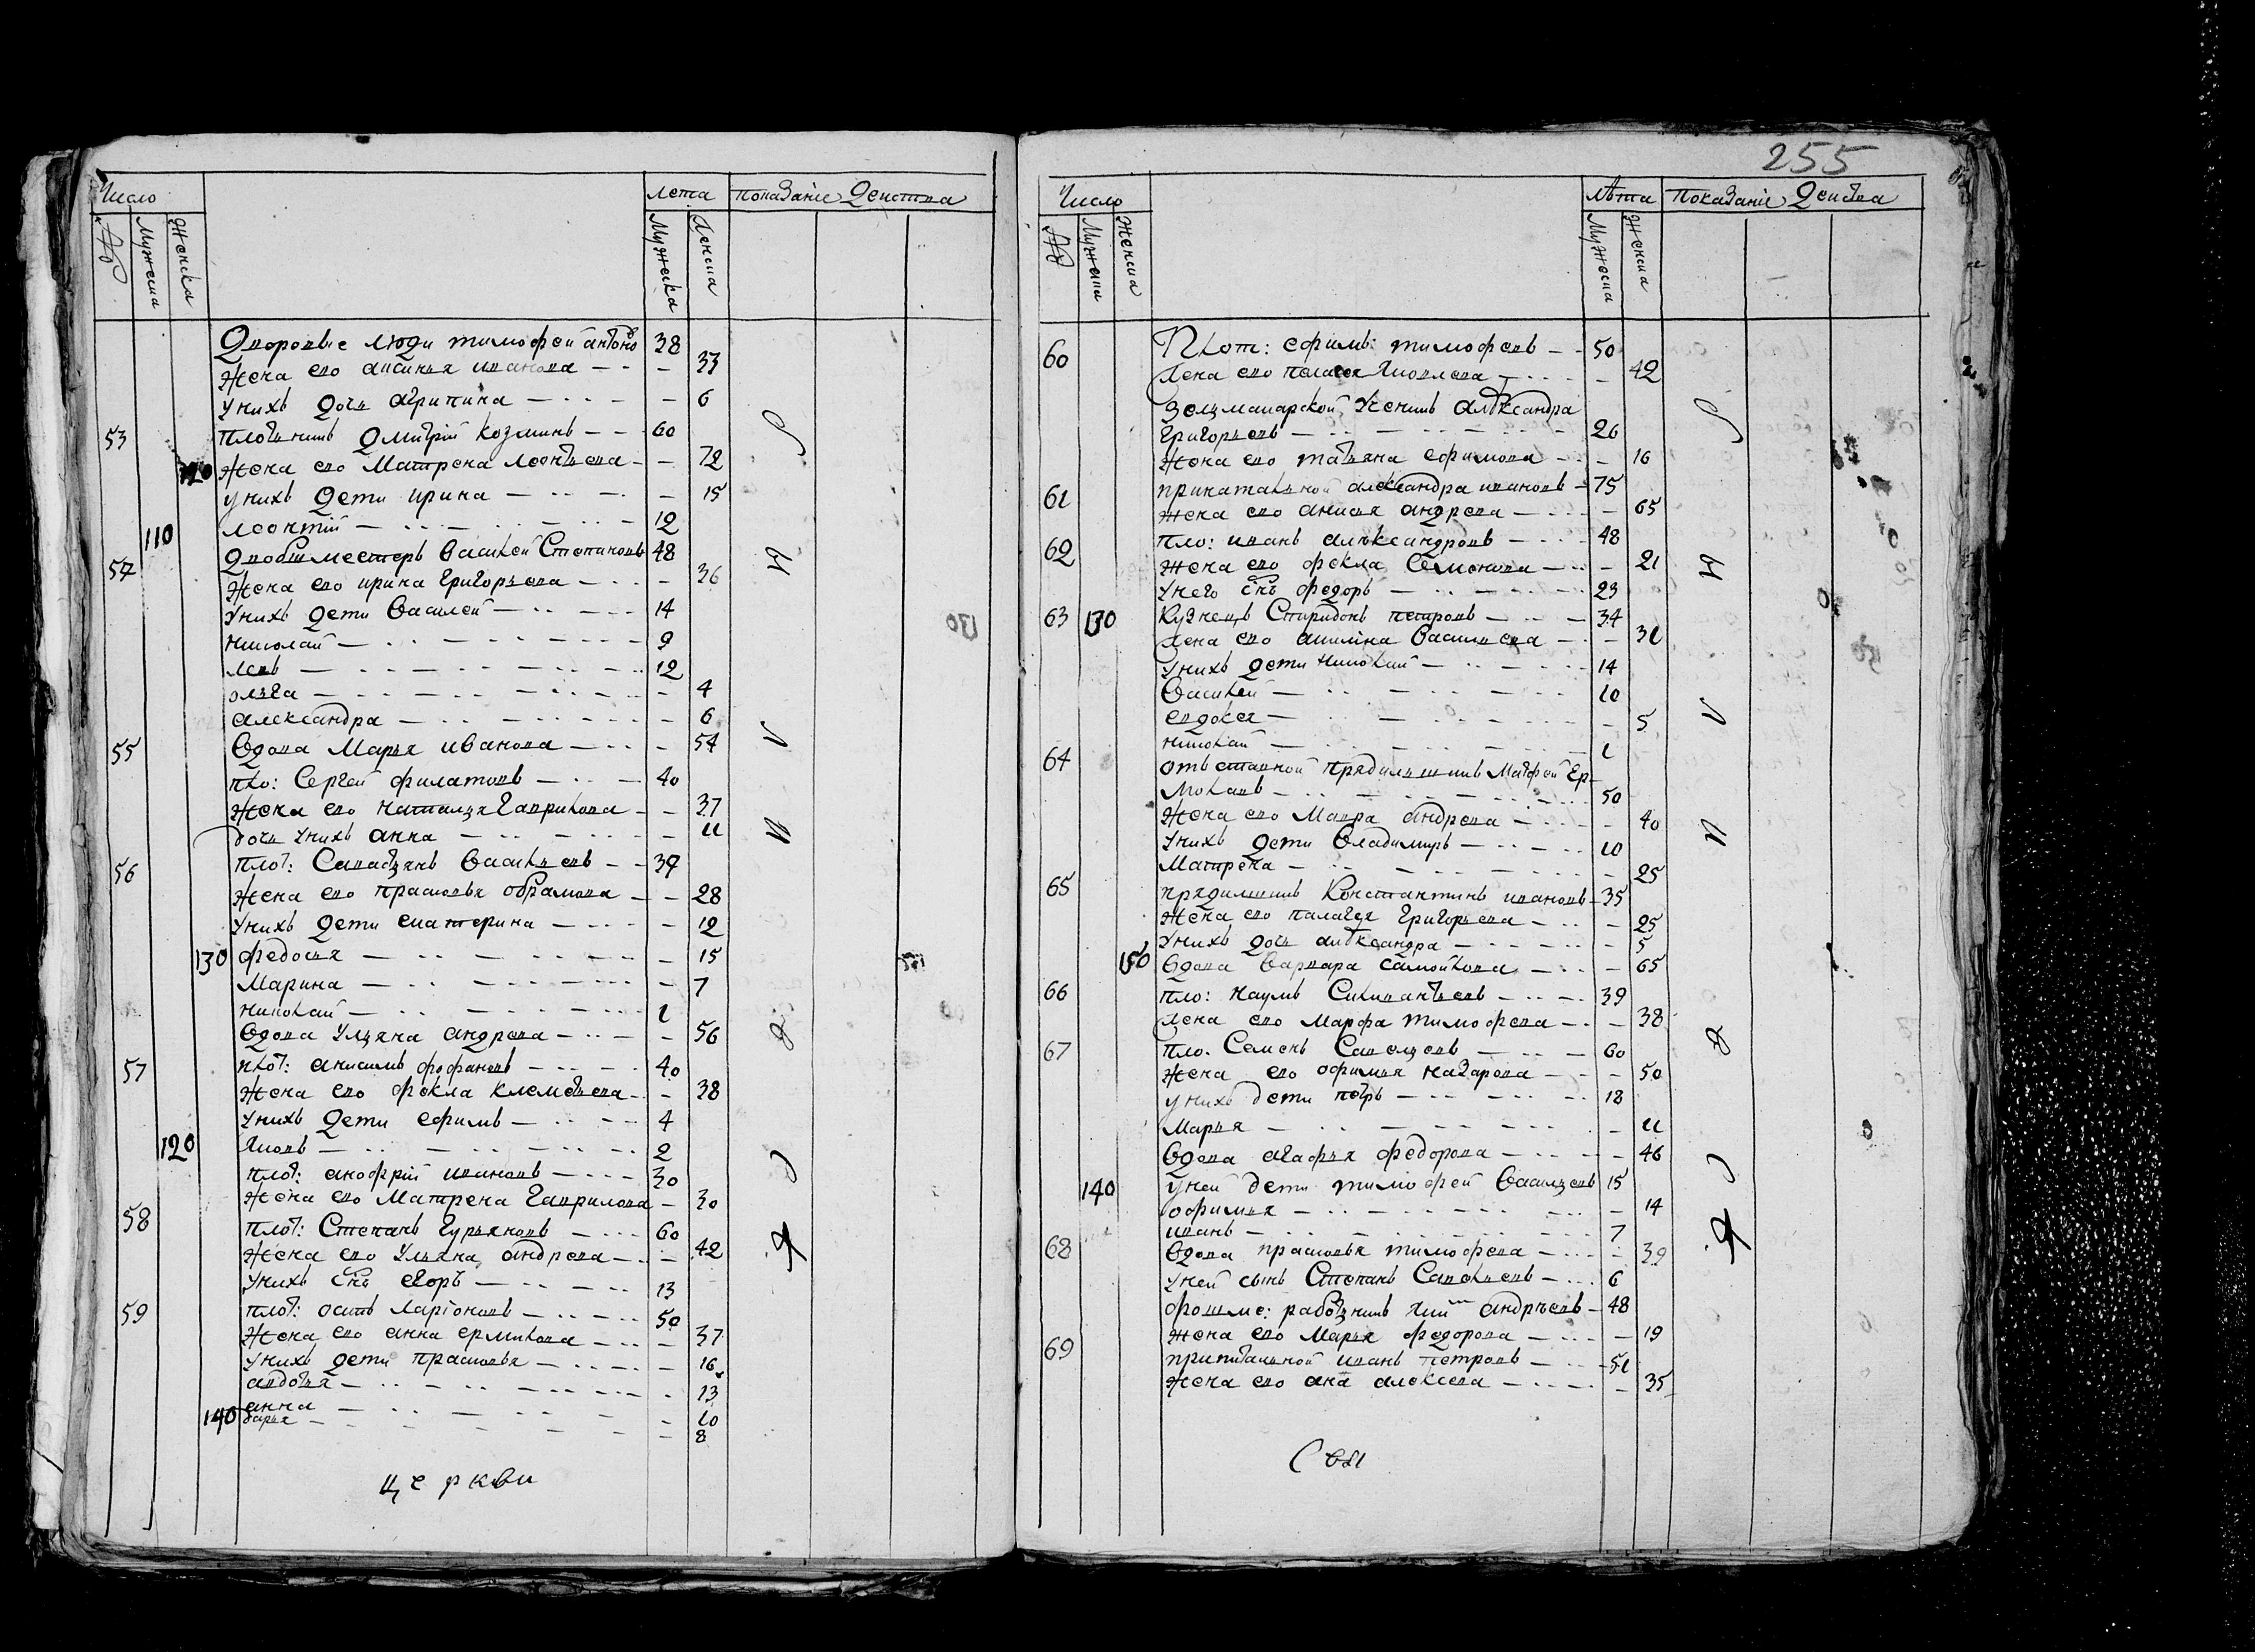 Число лета показаніе действа
№ Мужеска Женска Мужеска Женска
Дворовые люди тимофеи антоно 38
Жена ево аксинья иванова 33
Унихъ дочь агрипина 6
53 плотникъ дмитрій козминъ 60
120 Жена ево Матрена леонтьева 72
унихъ дети ирина 15
110 леонтій 12
54 василей Степановъ 48
Жена ево ирина Григорьева 36
Унихъ дети Василей 14
николай 9
левъ 12
олга 4
александра 6
55 Вдова Марья иванова 54
пло: Сергей филатовъ 40
Жена ево наталья Гаврилова 37
дочь Унихъ анна 11
56 плот: Савастьянъ Васильевъ 39
Жена ево прасковья обрамова 28
Унихъ дети екатерина 12
130 федосья 15
Марина 7
николай 1
Вдова Ульяна андрева 56
57 плот: анисимъ фофановъ 40
Жена ево фекла клементьева 38
Унихъ дети ефимъ 4
120 Яковъ 2
плот: анофрій ивановъ 30
Жена ево Матрена Гаврилова 30
58 плот: Степанъ Гурьяновъ 60
Жена ево Ульяна андрева 42
Унихъ снъ егоръ 13
59 плот: осипъ ларіоновъ 50
Жена ево анна ермилова 37
Унихъ дети прасковья 16
авдотья 13
анна 10
140 дарья 8
церкви
255
Число лѣта показаніе действа
№ Мужеска Женска Мужеска Женска
60 Плот: ефимъ: тимофевъ 50
Жена ево пелагея Яковлева 42
Ученикъ александра
Григорьевъ 26
Жена ево татьяна ефимова 16
61 александра ивановъ 75
Жена ево анисья андрева 65
62 пло: иванъ александровъ 48
Жена ево фекла Семенова 21
Унего снъ федоръ 23
63 130 Кузнецъ Спиридонъ петровъ 34
Жена ево акилина Васильева 31
Унихъ дети николай 14
Василей 10
евдокея 5
николай 1
64 отъставной прядильшикъ Матфей Ер-
молаевъ 50
Жена ево Мавра андрева 40
Унихъ дети Владимиръ 10
Матрена 25
65 прядилшикъ Константинъ ивановъ 35
Жена ево палагея Григорьева 25
Унихъ дочь александра 5
150 Вдова Варвара самойлова 65
66 пло: наумъ Силивантьевъ 39
Жена ево Марфа тимофева 38
67 пло. Семенъ Савельевъ 60
Жена ево офимья назарова 50
унихъ дети петръ 18
Марья 11
Вдова агафья федорова 46
140 уней дети тимофей Васильевъ 15
офимья 14
иванъ 7
68 Вдова прасковья тимофева 39
Уней сынъ Степанъ Савельевъ 6
работникъ андрѣевъ 48
Жена ево Марья федорова 19
69 иванъ петровъ 51
Жена ево ана алексева 35